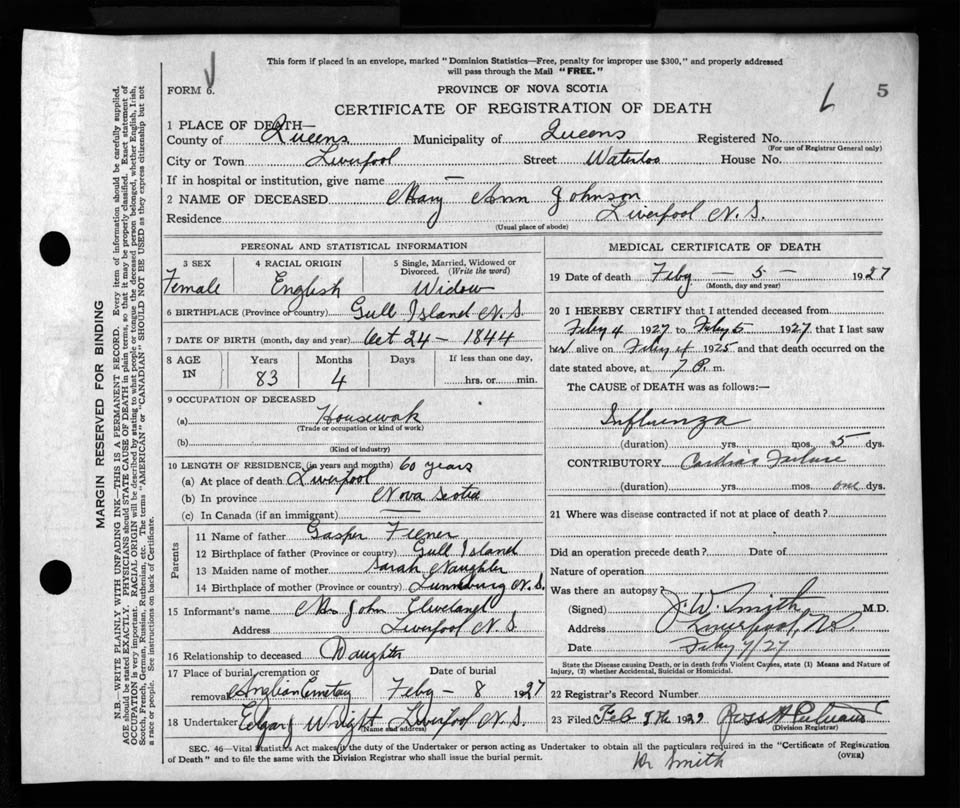 This form if placed in an envelope, marked "Dominion Statistics—Free, penalty for improper use $300," and properly addressed
will pass through the Mail "FREE."
FORM 6.
PROVINCE OF NOVA SCOTIA
5
CERTIFICATE OF REGISTRATION OF DEATH
1 PLACE OF DEATH—
County of Queens Municipality of Queens Registered No.
(For use of Registrar General only)
City or Town Liverpool Street Waterloo House No.
If in hospital or institution, give name —
2 NAME OF DECEASED Mary Ann Johnson
Residence Liverpool N.S.
(Usual place of abode)
PERSONAL AND STATISTICAL INFORMATION
3 SEX 4 RACIAL ORIGIN 5 Single, Married, Widowed or
Divorced. (Write the word)
Female English Widow
6 BIRTHPLACE (Province or country) Gull Island N.S.
7 DATE OF BIRTH (month, day and year) Oct 24 - 1844
8 AGE Years Months Days If less than one day,
IN 83 4 hrs. or min.
9 OCCUPATION OF DECEASED
(a) Housewok
(Trade or occupation or kind of work)
(b)
(Kind of industry)
10 LENGTH OF RESIDENCE (in years and months) 60 years
(a) At place of death Liverpool
(b) In province Nova Scotia
(c) In Canada (if an immigrant) —
Parents
11 Name of father Gasper
12 Birthplace of father (Province or country) Gull Island
13 Maiden name of mother Sarah Naughler
14 Birthplace of mother (Province or country) Lunenburg N.S.
15 Informant's name Mrs John Cleveland
Address Liverpool N.S.
16 Relationship to deceased Daughter
17 Place of burial, cremation or Date of burial
removal Feby - 8 1927
18 Undertaker Edgar J Wright Liverpool N.S.
(Name and address)
MEDICAL CERTIFICATE OF DEATH
19 Date of death Feby — 5 — 1927
(Month, day and year)
20 I HEREBY CERTIFY that I attended deceased from
Feby 4 1927 to Feby 5 1927, that I last saw
her alive on Feby 4 1925 and that death occurred on the
date stated above, at 7 P. m.
The CAUSE of DEATH was as follows:—
Influenza
(duration) yrs. mos. 5 dys.
CONTRIBUTORY Cardiac Failure
(duration) yrs. mos. one dys.
21 Where was disease contracted if not at place of death?
Did an operation precede death? Date of
Nature of operation
Was there an autopsy
(Signed) J.W. Smith M.D.
Address Liverpool, NS
Date Feby 7/27
State the Disease causing Death, or in death from Violent Causes, state (1) Means and Nature of
Injury, (2) whether Accidental, Suicidal or Homicidal.
22 Registrar's Record Number
23 Filed Feb 1927
(Division Registrar)
SEC. 46—Vital Statistics Act makes it the duty of the Undertaker or person acting as Undertaker to obtain all the particulars required in the "Certificate of Registration
of Death" and to file the same with the Division Registrar who shall issue the burial permit.
(OVER)
Dr Smith
MARGIN RESERVED FOR BINDING
N.B.—WRITE PLAINLY WITH UNFADING INK—THIS IS A PERMANENT RECORD. Every item of information should be carefully supplied.
AGE should be stated EXACTLY. PHYSICIANS should STATE CAUSE OF DEATH in plain terms, so that it may be properly classified. Exact statement of
OCCUPATION is very important. RACIAL ORIGIN will be described by stating to what people or tongue the deceased person belonged, whether English, Irish,
Scotch, French, German, Russian, Ruthenian, etc. The terms "AMERICAN" or "CANADIAN" SHOULD NOT BE USED as they express citizenship but not
a race or people. See instructions on back of Certificate.